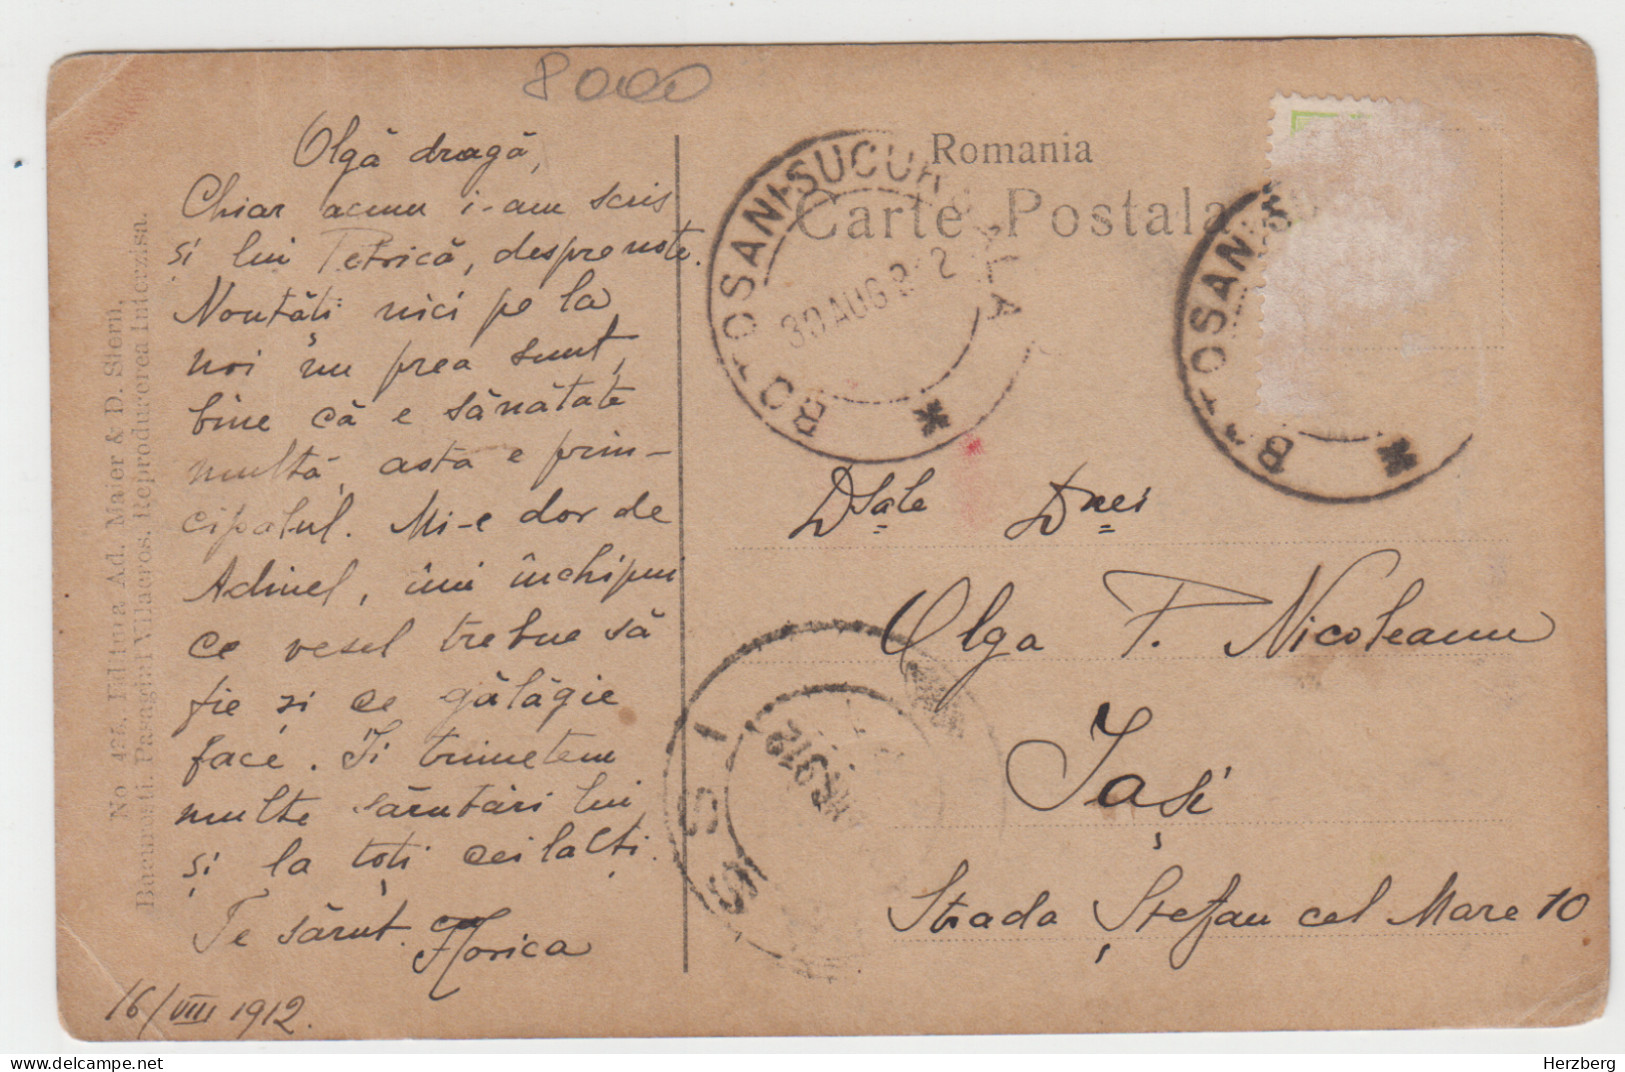 8000
Olgă dragă,
Chiar acum i-am scris
și lui Petrică, despre note.
Noutăți nici pe la
noi nu prea sunt,
bine că e sănătate
multă, asta e prin-
cipalul. Mi-e dor de
Adinel, îmi închipui
ce vesel trebue să
fie și ce gălăgie
face. Iți trimetem
multe sărutări lui
și la toți ceilalți.
Te sărut. Florica
16/VIII 1912.
No 425. Editura Ad. Maier & D. Stern,
Bucuresti. Pasagiul Vilacros. Reproducerea Interzisa.
Romania
Carte Postala
BOTOSANI-SUCUR
30 AUG 912
BOTOSANI
Dsale Dnei
Olga T. Nicoleanu
Iași
Strada Ștefan cel Mare 10
Herzberg
www.delcampe.net